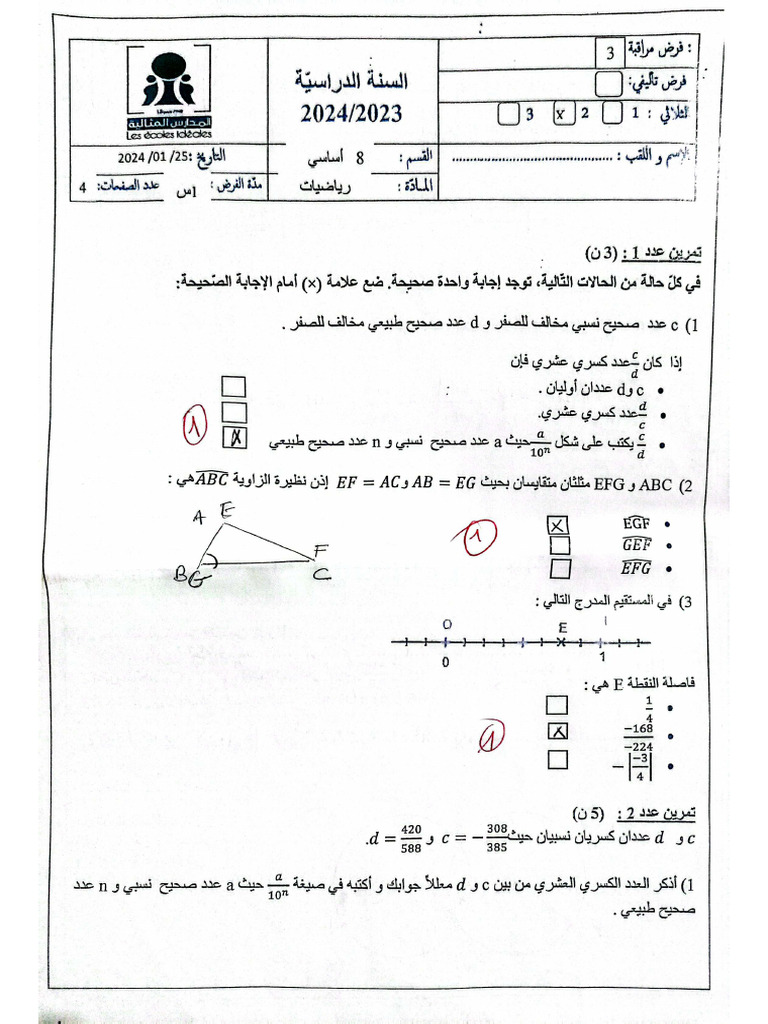 فرض مراقبة : 3
فرض تأليفي:
الثلاثي : 1 2 x 3
الإسم و اللقب : ........................................
السنة الدراسيّة
2024/2023
المدارس المثالية
Les écoles Idéales
القسم : 8 أساسي
التاريخ :25/ 01/ 2024
المادّة : رياضيات
مدّة الفرض : 1س
عدد الصفحات: 4
تمرين عدد 1 : (3 ن)
في كلّ حالة من الحالات التّالية، توجد إجابة واحدة صحيحة. ضع علامة (×) أمام الإجابة الصّحيحة:
1) c عدد صحيح نسبي مخالف للصفر و d عدد صحيح طبيعي مخالف للصفر .
إذا كان c/d عدد كسري عشري فإن
• c و d عددان أوليان .
• d/c عدد كسري عشري.
• c/d يكتب على شكل a/10ⁿ حيث a عدد صحيح نسبي و n عدد صحيح طبيعي x
1
2) ABC و EFG مثلثان متقايسان بحيث AB = EG و EF = AC إذن نظيرة الزاوية ABC هي :
• EGF x
• GEF
• EFG
1
A E
F
B G
C
3) في المستقيم المدرج التالي :
O E I
0 1
فاصلة النقطة E هي :
• 1/4
• −168/−224 x
• −|−3/4|
1
تمرين عدد 2 : (5 ن)
c و d عددان كسريان نسبيان حيث c = −308/385 و d = 420/588.
1) أذكر العدد الكسري العشري من بين c و d معللاً جوابك و أكتبه في صيغة a/10ⁿ حيث a عدد صحيح نسبي و n عدد
صحيح طبيعي .